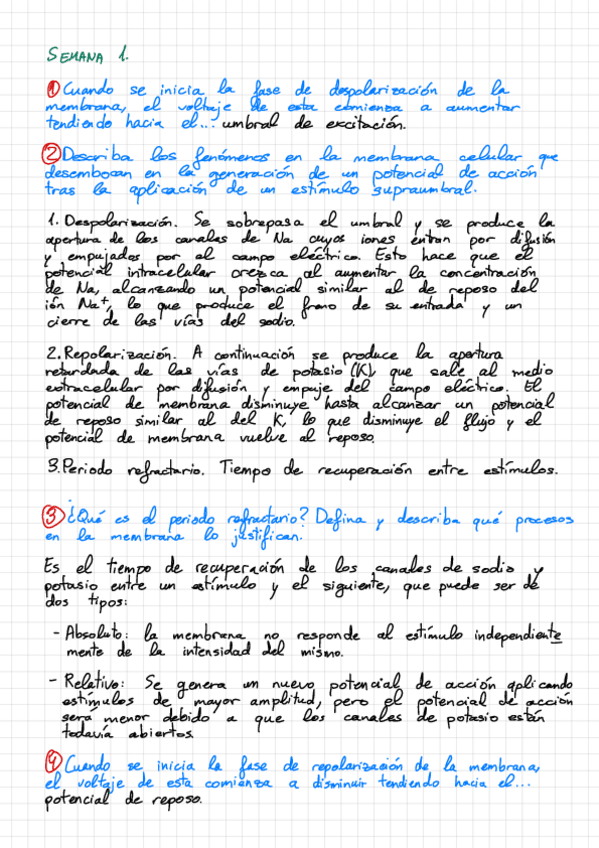 SEMANA 1.
① Cuando se inicia la fase de despolarización de la
membrana, el voltaje de esta comienza a aumentar
tendiendo hacia el... umbral de excitación.
② Describa los fenómenos en la membrana celular que
desembocan en la generación de un potencial de acción
tras la aplicación de un estímulo supraumbral.
1. Despolarización. Se sobrepasa el umbral y se produce la
apertura de los canales de Na cuyos iones entran por difusión
y empujados por el campo eléctrico. Esto hace que el
potencial intracelular crezca al aumentar la concentración
de Na, alcanzando un potencial similar al de reposo del
ión Na⁺, lo que produce el freno de su entrada y un
cierre de las vías del sodio.
2. Repolarización. A continuación se produce la apertura
retardada de las vías de potasio (K), que sale al medio
extracelular por difusión y empuje del campo eléctrico. El
potencial de membrana disminuye hasta alcanzar un potencial
de reposo similar al del K, lo que disminuye el flujo y el
potencial de membrana vuelve al reposo.
3. Periodo refractario. Tiempo de recuperación entre estímulos.
③ ¿Qué es el periodo refractario? Defina y describa qué procesos
en la membrana lo justifican.
Es el tiempo de recuperación de los canales de sodio y
potasio entre un estímulo y el siguiente, que puede ser de
dos tipos:
- Absoluto: la membrana no responde al estímulo independiente
mente de la intensidad del mismo.
- Relativo: Se genera un nuevo potencial de acción aplicando
estímulos de mayor amplitud, pero el potencial de acción
será menor debido a que los canales de potasio están
todavía abiertos.
④ Cuando se inicia la fase de repolarización de la membrana,
el voltaje de esta comienza a disminuir tendiendo hacia el...
potencial de reposo.